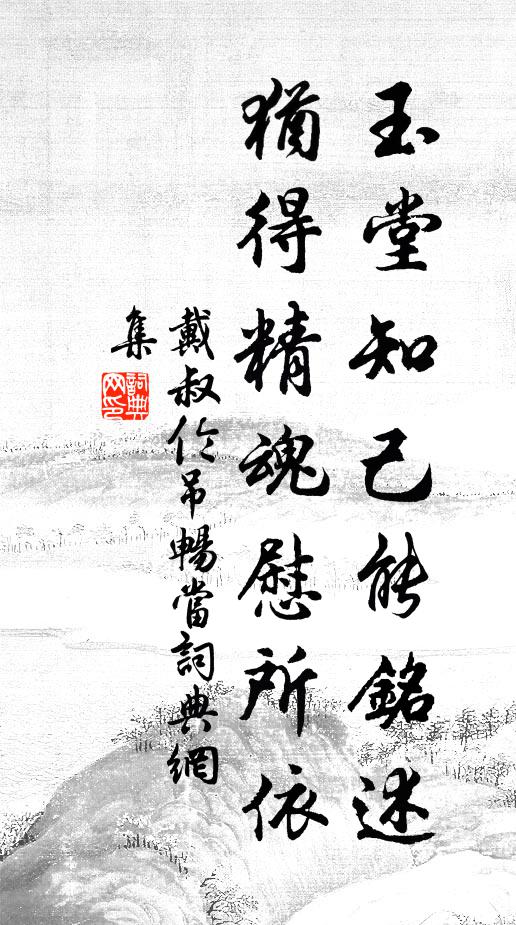 玉堂知己能銘述
猶得精魂慰所依
戴叔伦吊暢當詞典網
集
詞典網印